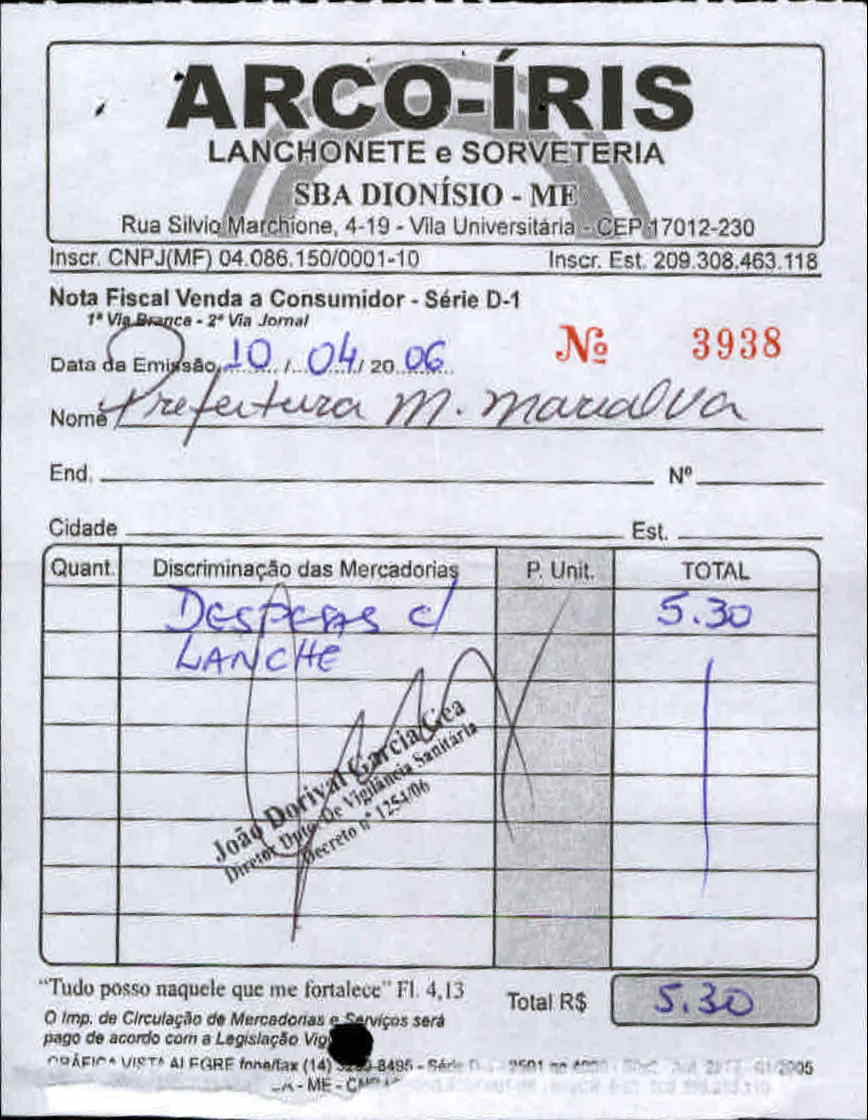 ARCO-ÍRIS
LANCHONETE e SORVETERIA
SBA DIONÍSIO - ME
Rua Silvio Marchione, 4-19 - Vila Universitária - CEP 17012-230
Inscr. CNPJ(MF) 04.086.150/0001-10 Inscr. Est. 209.308.463.118
Nota Fiscal Venda a Consumidor - Série D-1
1ª Via Branca - 2ª Via Jornal
Nº 3938
Data da Emissão, 10 / 04 / 20 06
Nome Prefeitura M. Marialva
End. Nº
Cidade Est.
Quant. Discriminação das Mercadorias P. Unit. TOTAL
DESPESAS c/ 5.30
LANCHE
João Dorival Garcia Gea
Diretor Dpto. De Vigilância Sanitária
Decreto nº 1254/06
"Tudo posso naquele que me fortalece" Fl. 4,13
Total R$ 5.30
O Imp. de Circulação de Mercadorias e Serviços será
pago de acordo com a Legislação Vig
GRÁFICA VISTA ALEGRE fone/fax (14) -8495 - Série
- ME -